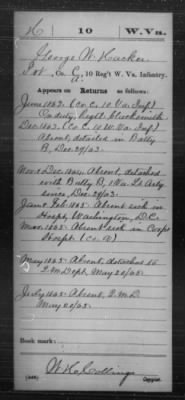 H | 10 | W. Va.
George W. Hacker
Pvt., Co. C, 10 Reg't W. Va. Infantry.
Appears on Returns as follows:
June 1863. (Co. C. 10 Va. Inf)
on duty, Regtl. blacksmith
Dec. 1863. (Co. C. 10 W. Va. Inf)
Absent, detailed in Batty
B, Dec. 29/63.
Nov. & Dec. 1864. Absent, detached
with Batty B, 1 Va. Lt. Arty
since, Dec. 29/63.
Jan. & Feb. 1865. Absent sick in
Hospt, Washington, D.C.
Mar. 1865. Absent sick in Corps
Hospt. (Co. A)
May 1865. Absent, detached to
Q.M. Dept, May 20/65.
July 1865. Absent, Q.M.D.
May 20/65.
Book mark:
(546)
Copyist.